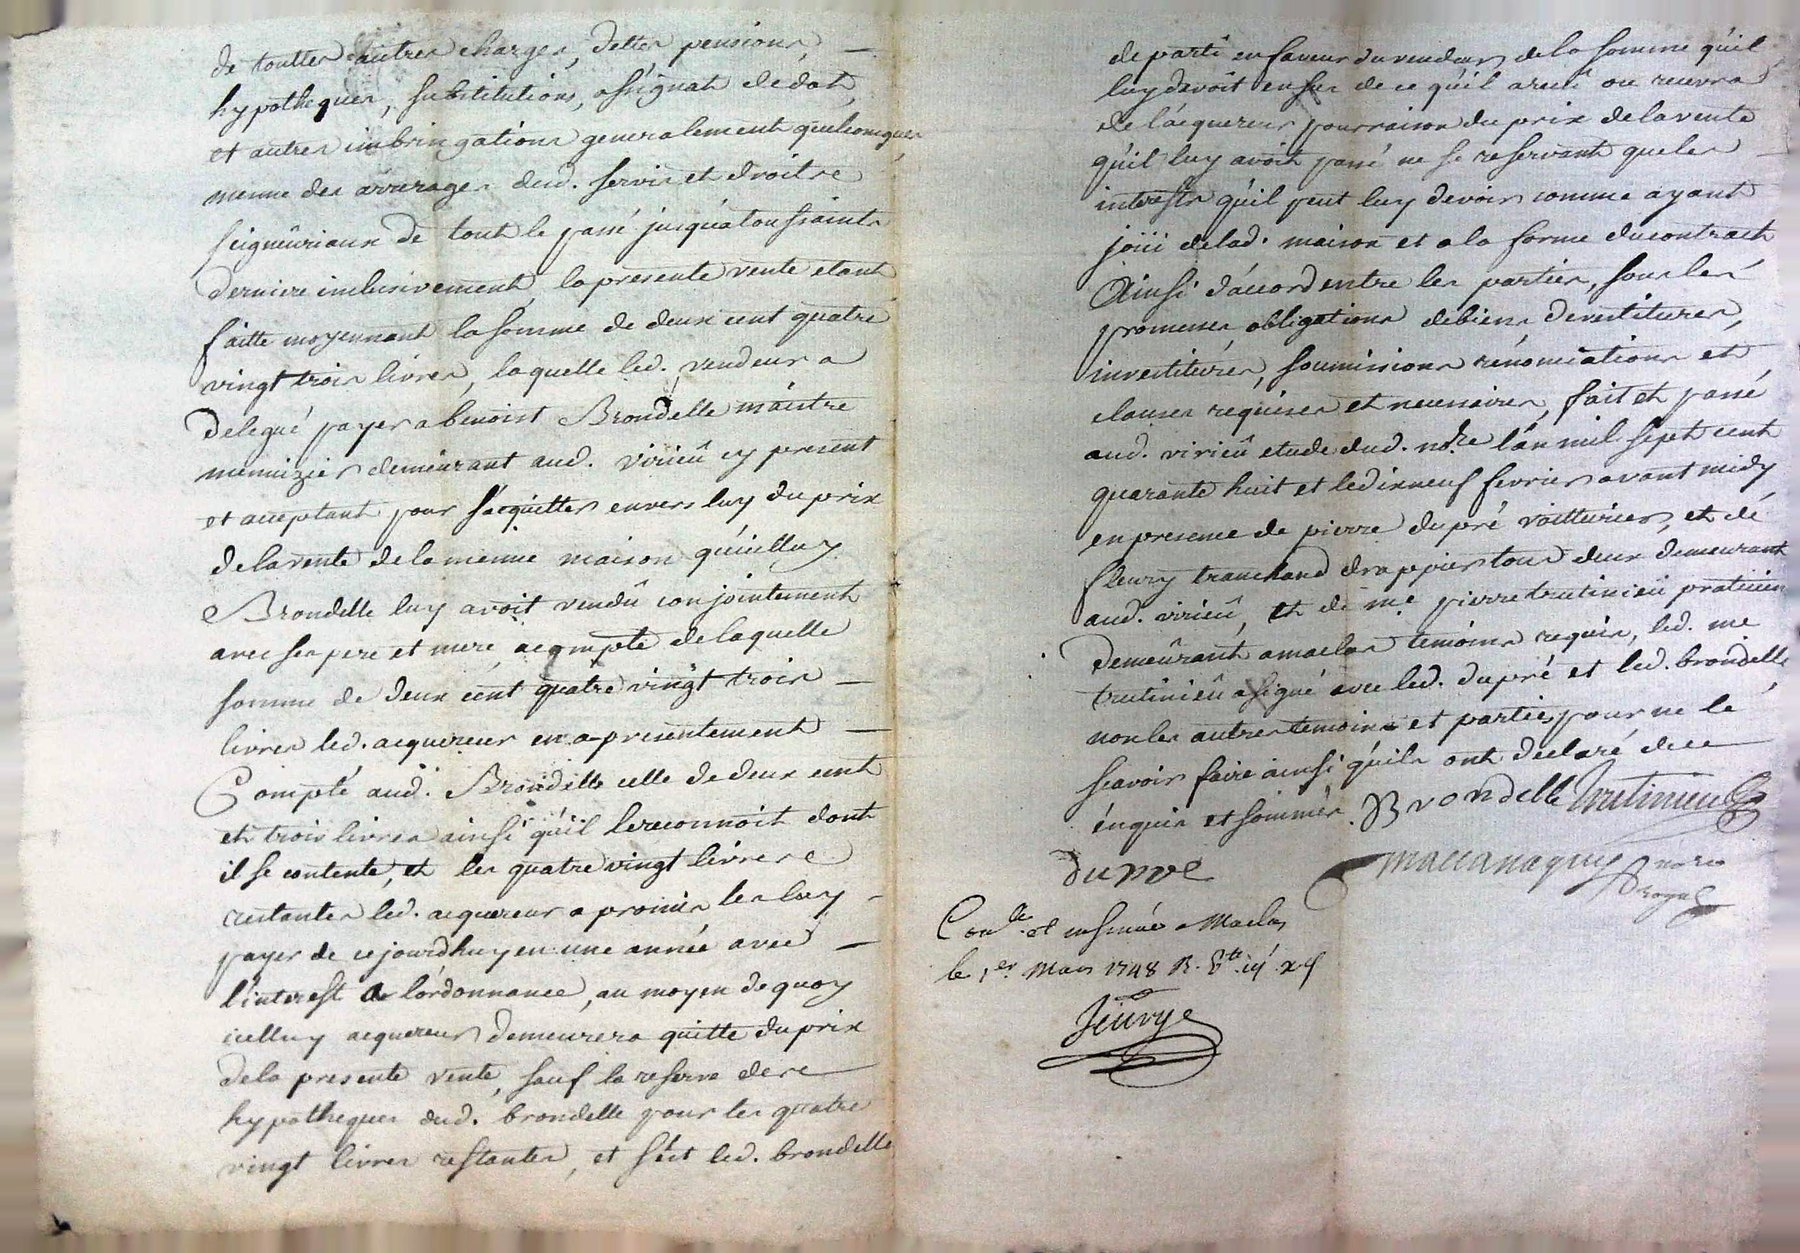 de touttes autres charges, dettes pensions
hypotheques, substitutions, assignat de dot,
et autres inbringations generalement quelconques
mesme des arrerages dud. servis et droits
seigneüriaux de tout le passé jusqu'a toussaints
derniere inclusivement, la presente vente etant
faitte moyennant la somme de deux cent quatre
vingt trois livres, laquelle led. vendeur a
delegué payer a benoist Brondelle maistre
menuizier demeurant aud. virieû cy present
et acceptant pour s'acquitter envers luy du prix
de la vente de la mesme maison qu'icelluy
Brondelle luy avoit vendû conjointement
avec ses pere et mere acompte de laquelle
somme de deux cent quatre vingt trois
livres led. acquereur en a presentement
Compté aud. Brondelle celle de deux cent
et trois livres ainsi qu'il le reconnoit dont
il se contente, et les quatre vingt livres
restantes led. acquereur a promis les luy
payer de ce jourdhuy en une année avec
l'interest a l'ordonnance, au moyen de quoy
icelluy acquereur demeurera quitte du prix
de la presente vente, sauf la reserve de
hypotheques dud. brondelle pour les quatre
vingt livres restantes, et s'est led. brondelle
departi en faveur du vendeur de la somme qu'il
luy devoit en sus de ce qu'il a receû ou recevra
de l'acquereur pour raison du prix de la vente
qu'il luy avoit passé ne se reservant que les
interests qu'il peut luy devoir comme ayant
joüi de lad. maison et a la forme du contract
Ainsi d'accord entre les parties, sous les
promesses obligations de biens devestitures,
investitures, soumissions rénonciations et
clauses requises et necessaires, fait et passé
aud. virieû etude dud. nore. l'an mil sept cent
quarante huit et le dixneuf fevrier avant midy
en presence de pierre dupré voitturier, et de
fleury tranchand drappier tous deux demeurant
aud. virieû, et de me. pierre trutinieû praticien
demeûrant a maclas temoins requis, led. me
trutinieû a signé avec led. dupré et led. brondelle
non les autres temoins et parties pour ne le
sçavoir faire ainsi qu'ils ont declaré de ce
énquis et sommés. Brondelle Trutinieu
dupré
nore
royal
Conlé. et insinué a Maclas
le 1er. Mars 1748 R.